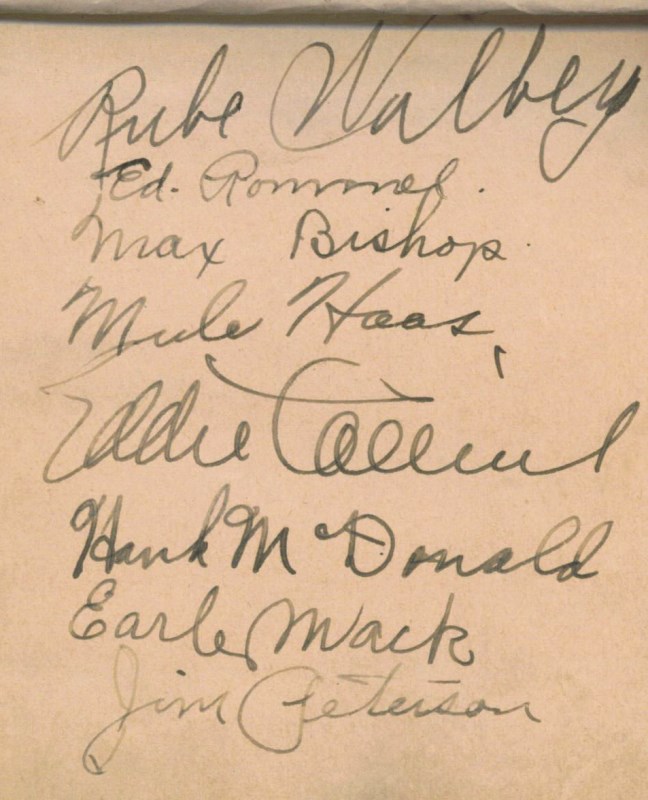 Rube Walbey
Ed. Rommel.
Max Bishop.
Mule Haas
Eddie Collins
Hank McDonald
Earle Mack
Jim Peterson